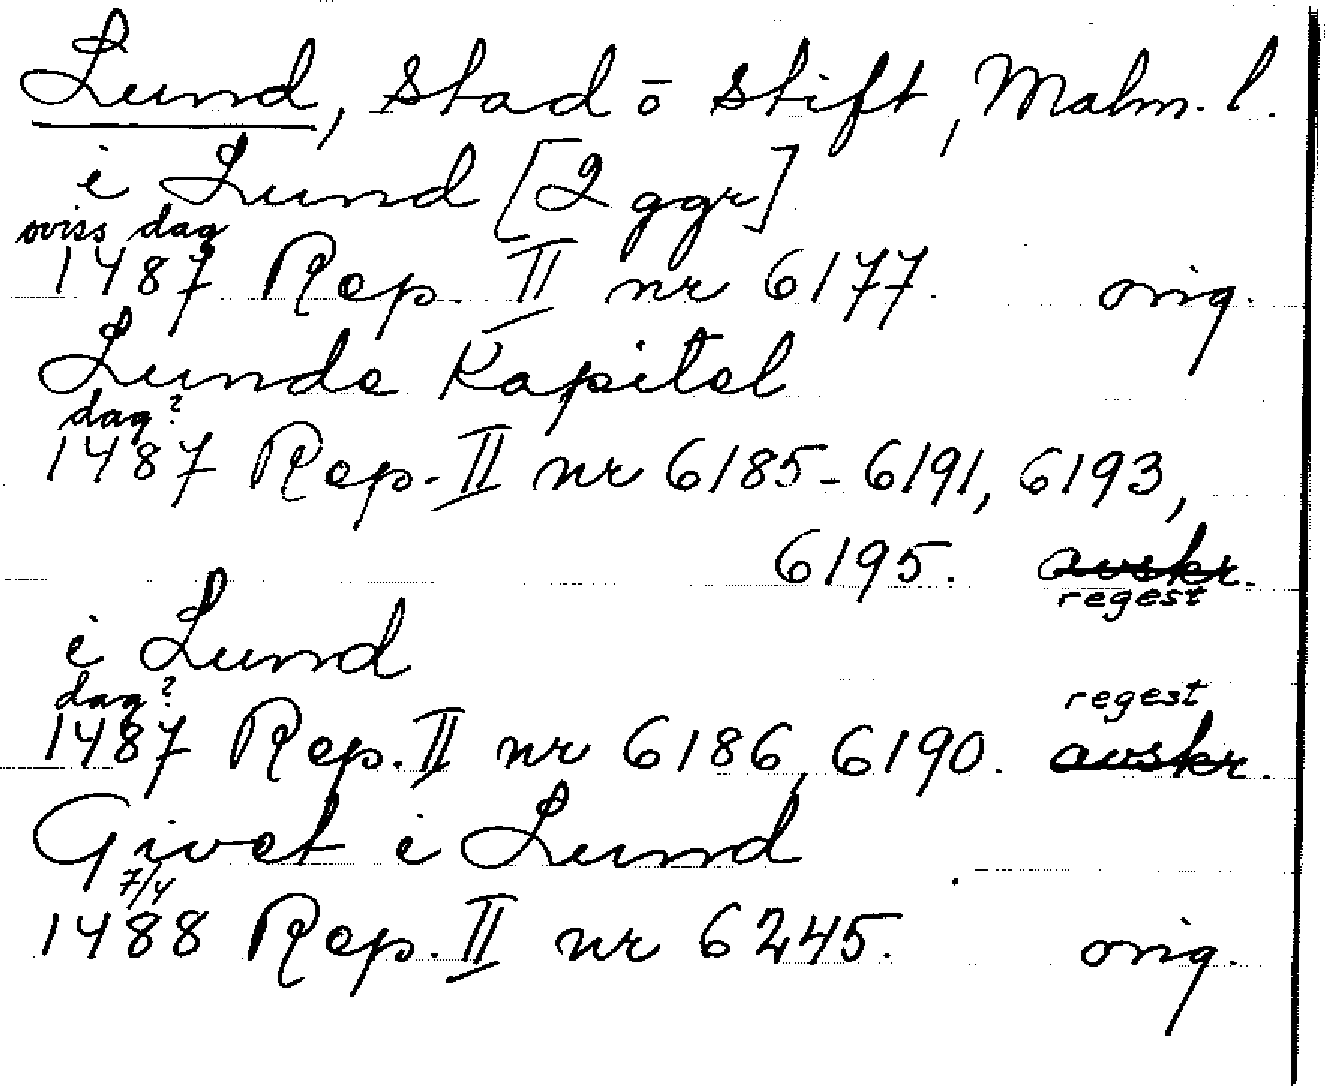 Lund, Stad ō Stift, Malm. l.
i Lund [2 ggr]
oviss dag
1487 Rep. II nr 6177. orig.
Lunde Kapitel
dag?
1487 Rep. II nr 6185-6191, 6193,
6195. avskr.
regest
i Lund
dag? regest
1487 Rep. II nr 6186, 6190. avskr.
Givet i Lund
7/4
1488 Rep. II nr 6245. orig.